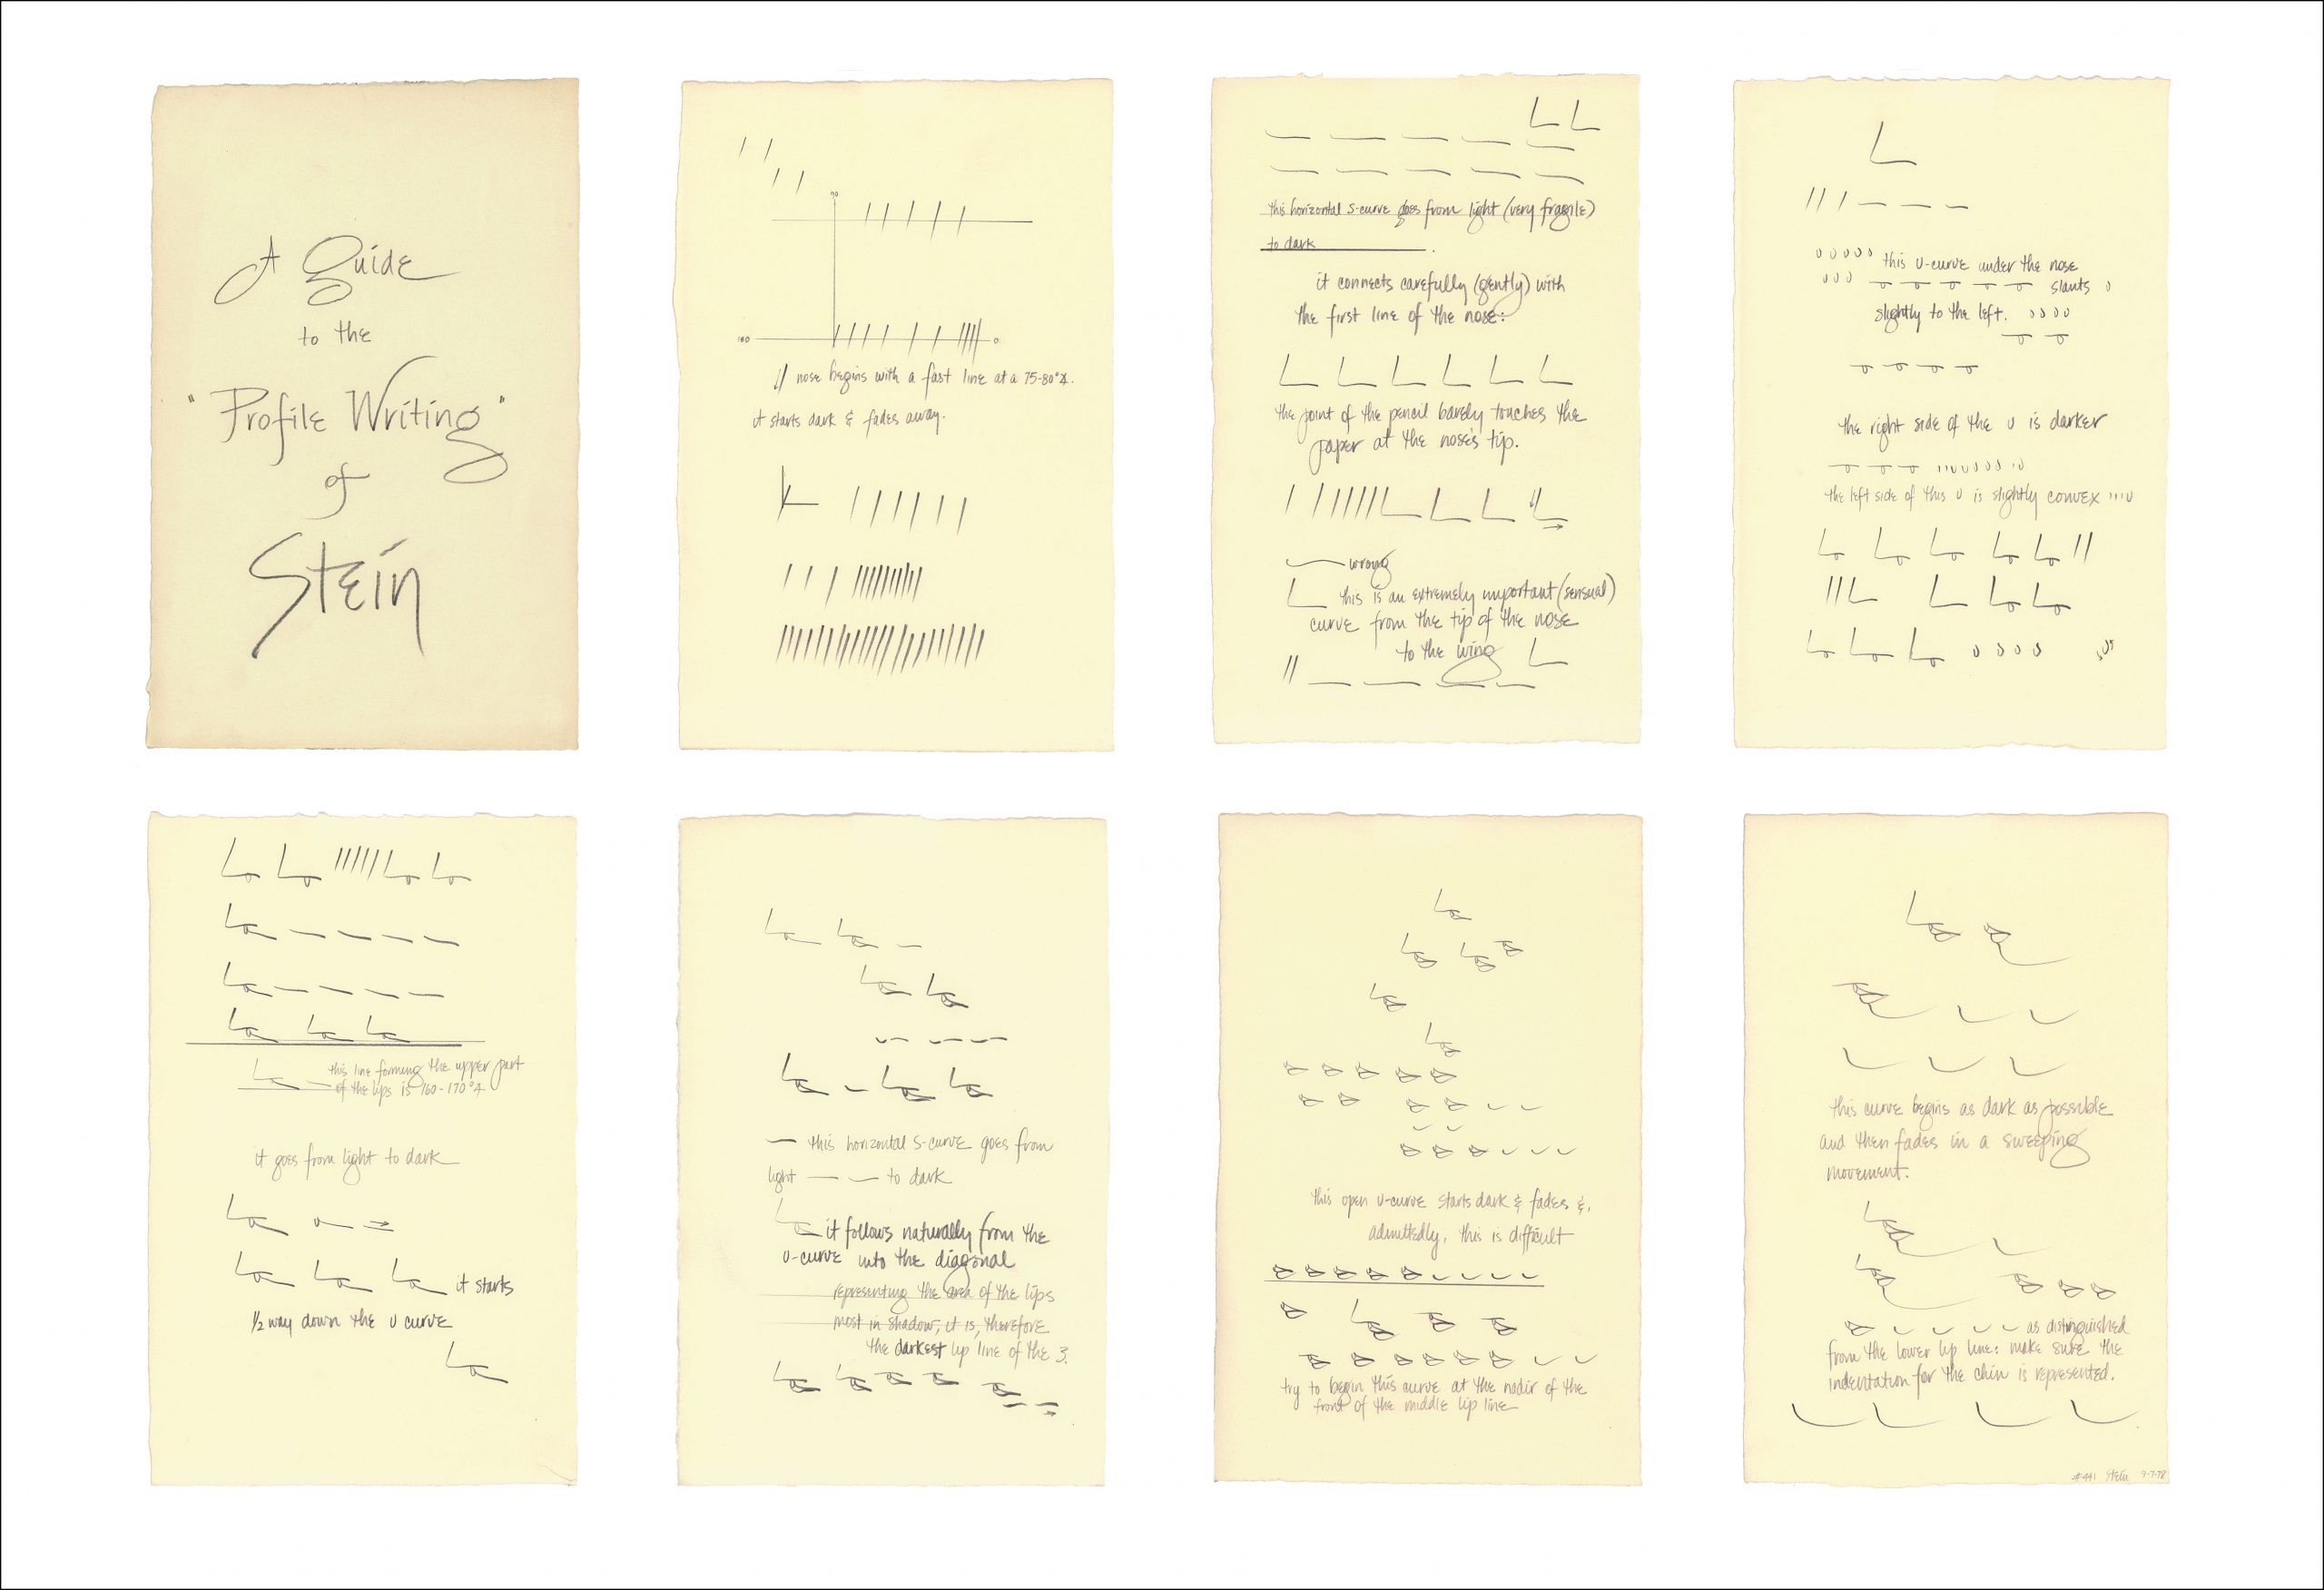 A Guide
to the
"Profile Writing"
of
Stein
90
180
0
nose begins with a fast line at a 75-80°∡.
it starts dark & fades away.
this horizontal s-curve goes from light (very fragile)
to dark .
it connects carefully (gently) with
the first line of the nose:
the point of the pencil barely touches the
paper at the nose's tip.
wrong
this is an extremely important (sensual)
curve from the tip of the nose
to the wing
this U-curve under the nose
slants
slightly to the left.
the right side of the U is darker
the left side of this U is slightly convex
this line forming the upper part
of the lips is 160-170°∡
it goes from light to dark
it starts
½ way down the U curve
this horizontal s-curve goes from
light to dark
it follows naturally from the
U-curve into the diagonal
representing the area of the lips
most in shadow; it is, therefore
the darkest lip line of the 3.
this open U-curve starts dark & fades &,
admittedly, this is difficult
try to begin this curve at the nadir of the
front of the middle lip line
this curve begins as dark as possible
and then fades in a sweeping
movement.
as distinguished
from the lower lip line: make sure the
indentation for the chin is represented.
#441 Stein 9-7-78